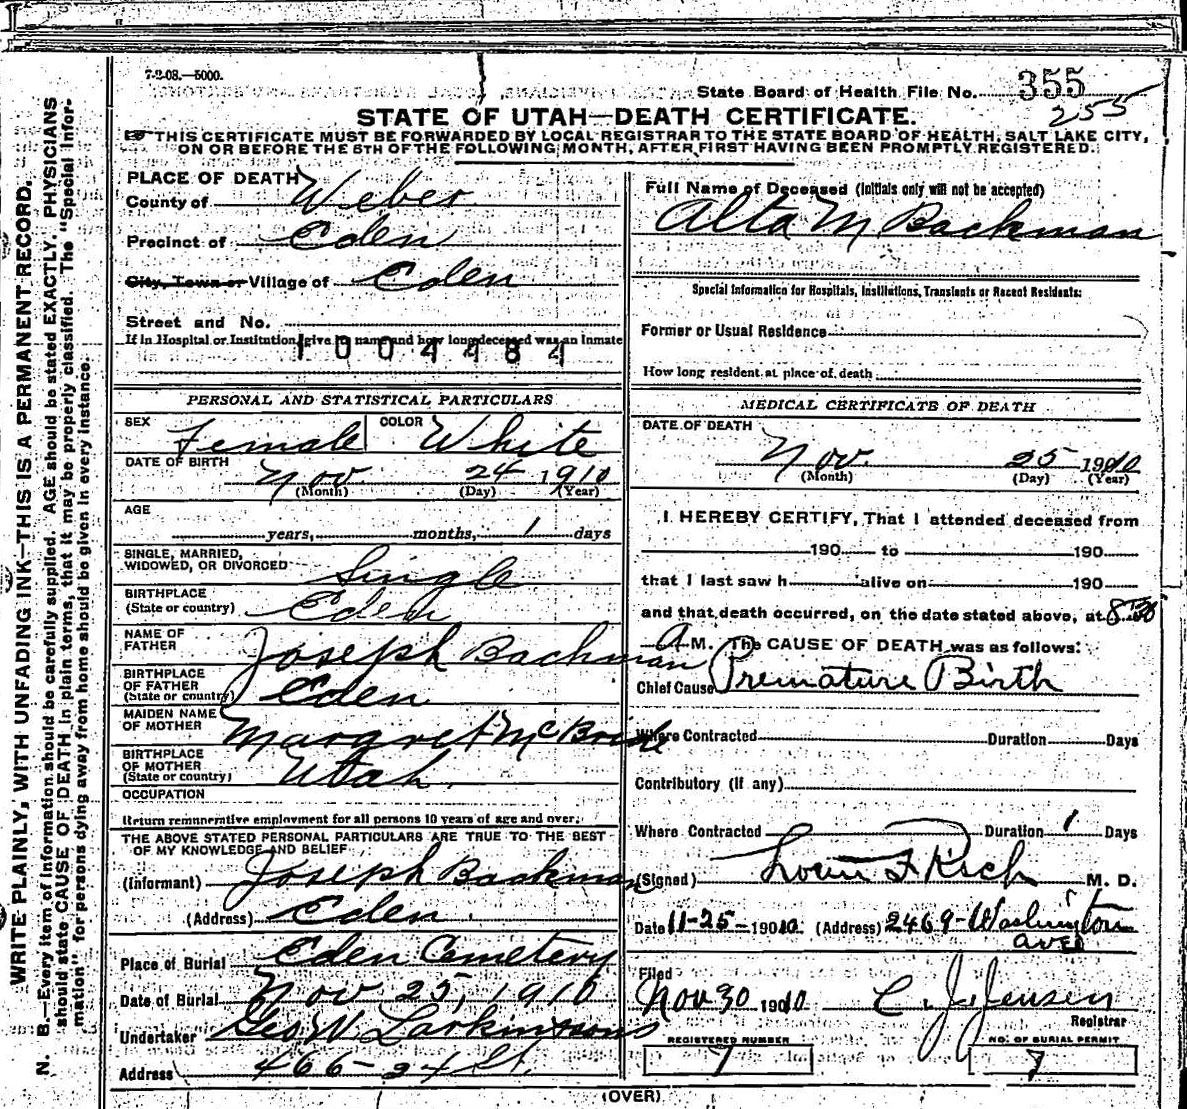 7-2-08.—5000.
State Board of Health File No. 355
255
STATE OF UTAH—DEATH CERTIFICATE.
THIS CERTIFICATE MUST BE FORWARDED BY LOCAL REGISTRAR TO THE STATE BOARD OF HEALTH, SALT LAKE CITY,
ON OR BEFORE THE 5TH OF THE FOLLOWING MONTH, AFTER FIRST HAVING BEEN PROMPTLY REGISTERED.
WRITE PLAINLY, WITH UNFADING INK—THIS IS A PERMANENT RECORD.
N. B.—Every item of information should be carefully supplied. AGE should be stated EXACTLY. PHYSICIANS
should state CAUSE OF DEATH in plain terms, that it may be properly classified. The "Special Infor-
mation" for persons dying away from home should be given in every instance.
PLACE OF DEATH
County of Weber
Precinct of Eden
City, Town or Village of Eden
Street and No.
If in Hospital or Institution, give its name and how long deceased was an inmate
1004484
PERSONAL AND STATISTICAL PARTICULARS
SEX Female COLOR White
DATE OF BIRTH
Nov 24 1910
(Month) (Day) (Year)
AGE
years, months, 1 days
SINGLE, MARRIED,
WIDOWED, OR DIVORCED Single
BIRTHPLACE
(State or country) Eden
NAME OF
FATHER Joseph Bachman
BIRTHPLACE
OF FATHER
(State or country) Eden
MAIDEN NAME
OF MOTHER Margret McBride
BIRTHPLACE
OF MOTHER
(State or country) Utah
OCCUPATION
Return remunerative employment for all persons 10 years of age and over.
THE ABOVE STATED PERSONAL PARTICULARS ARE TRUE TO THE BEST
OF MY KNOWLEDGE AND BELIEF
(Informant) Joseph Backman
(Address) Eden
Place of Burial Eden Cemetery
Date of Burial Nov 25, 1910
Undertaker Geo W. Larkin & Sons
Address 466-24 St.
Full Name of Deceased (Initials only will not be accepted)
Alta M Backman
Special Information for Hospitals, Institutions, Transients or Recent Residents:
Former or Usual Residence
How long resident at place of death
MEDICAL CERTIFICATE OF DEATH
DATE OF DEATH
Nov. 25 1910
(Month) (Day) (Year)
I HEREBY CERTIFY, That I attended deceased from
190 to 190
that I last saw h alive on 190
and that death occurred, on the date stated above, at 8.30
A M. The CAUSE OF DEATH was as follows:
Chief Cause Premature Birth
Where Contracted Duration Days
Contributory (if any)
Where Contracted Duration 1 Days
(Signed) F Rich M. D.
Date 11-25-1910. (Address) 2469-Washington
ave
Filed
Nov 30 1910 C. J. Jensen
Registrar
REGISTERED NUMBER
7
NO. OF BURIAL PERMIT
7
(OVER)